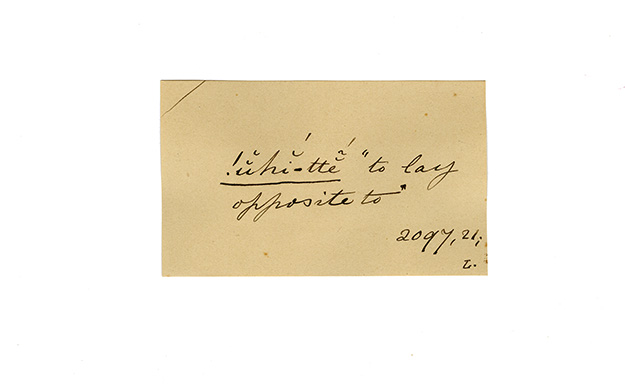 !ŭhĭ́-ttĕ̃́ "to lay
opposite to"
2097, 21;
L.